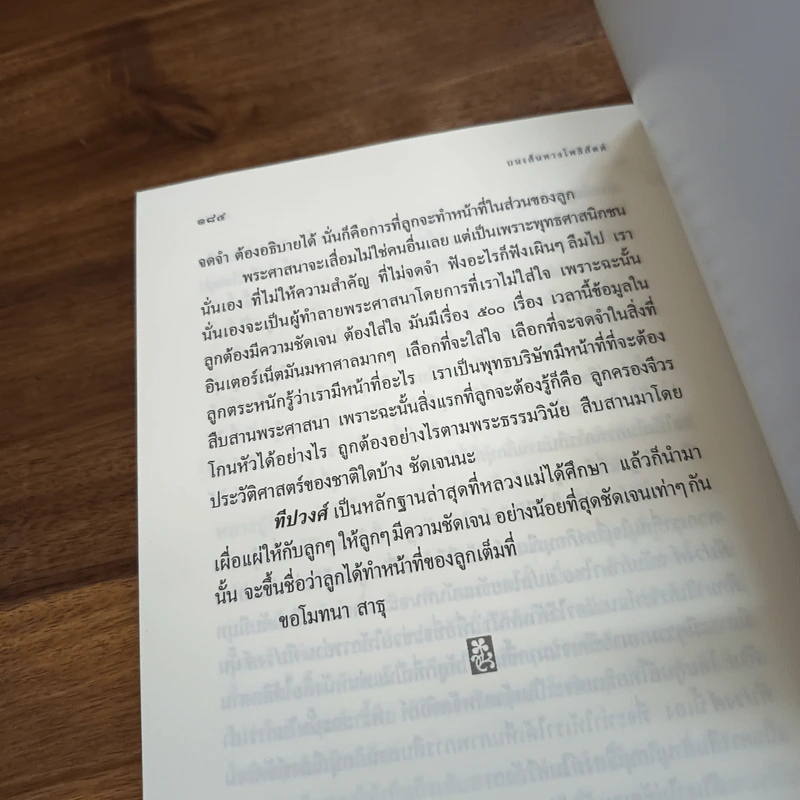 ๑๘๔
บนเส้นทางโพธิสัตต์
จดจำ ต้องอธิบายได้ นั่นก็คือการที่ลูกจะทำหน้าที่ในส่วนของลูก
พระศาสนาจะเสื่อมไม่ใช่คนอื่นเลย แต่เป็นเพราะพุทธศาสนิกชน
นั่นเอง ที่ไม่ให้ความสำคัญ ที่ไม่จดจำ ฟังอะไรก็ฟังเผินๆ ลืมไป เรา
นั่นเองจะเป็นผู้ทำลายพระศาสนาโดยการที่เราไม่ใส่ใจ เพราะฉะนั้น
ลูกต้องมีความชัดเจน ต้องใส่ใจ มันมีเรื่อง ๕๐๐ เรื่อง เวลานี้ข้อมูลใน
อินเตอร์เน็ตมันมหาศาลมากๆ เลือกที่จะใส่ใจ เลือกที่จะจดจำในสิ่งที่
ลูกตระหนักรู้ว่าเรามีหน้าที่อะไร เราเป็นพุทธบริษัทมีหน้าที่ที่จะต้อง
สืบสานพระศาสนา เพราะฉะนั้นสิ่งแรกที่ลูกจะต้องรู้ก็คือ ลูกครองจีวร
โกนหัวได้อย่างไร ถูกต้องอย่างไรตามพระธรรมวินัย สืบสานมาโดย
ประวัติศาสตร์ของชาติใดบ้าง ชัดเจนนะ
ทีปวงศ์ เป็นหลักฐานล่าสุดที่หลวงแม่ได้ศึกษา แล้วก็นำมา
เผื่อแผ่ให้กับลูกๆ ให้ลูกๆ มีความชัดเจน อย่างน้อยที่สุดชัดเจนเท่าๆ กัน
นั้น จะขึ้นชื่อว่าลูกได้ทำหน้าที่ของลูกเต็มที่
ขอโมทนา สาธุ